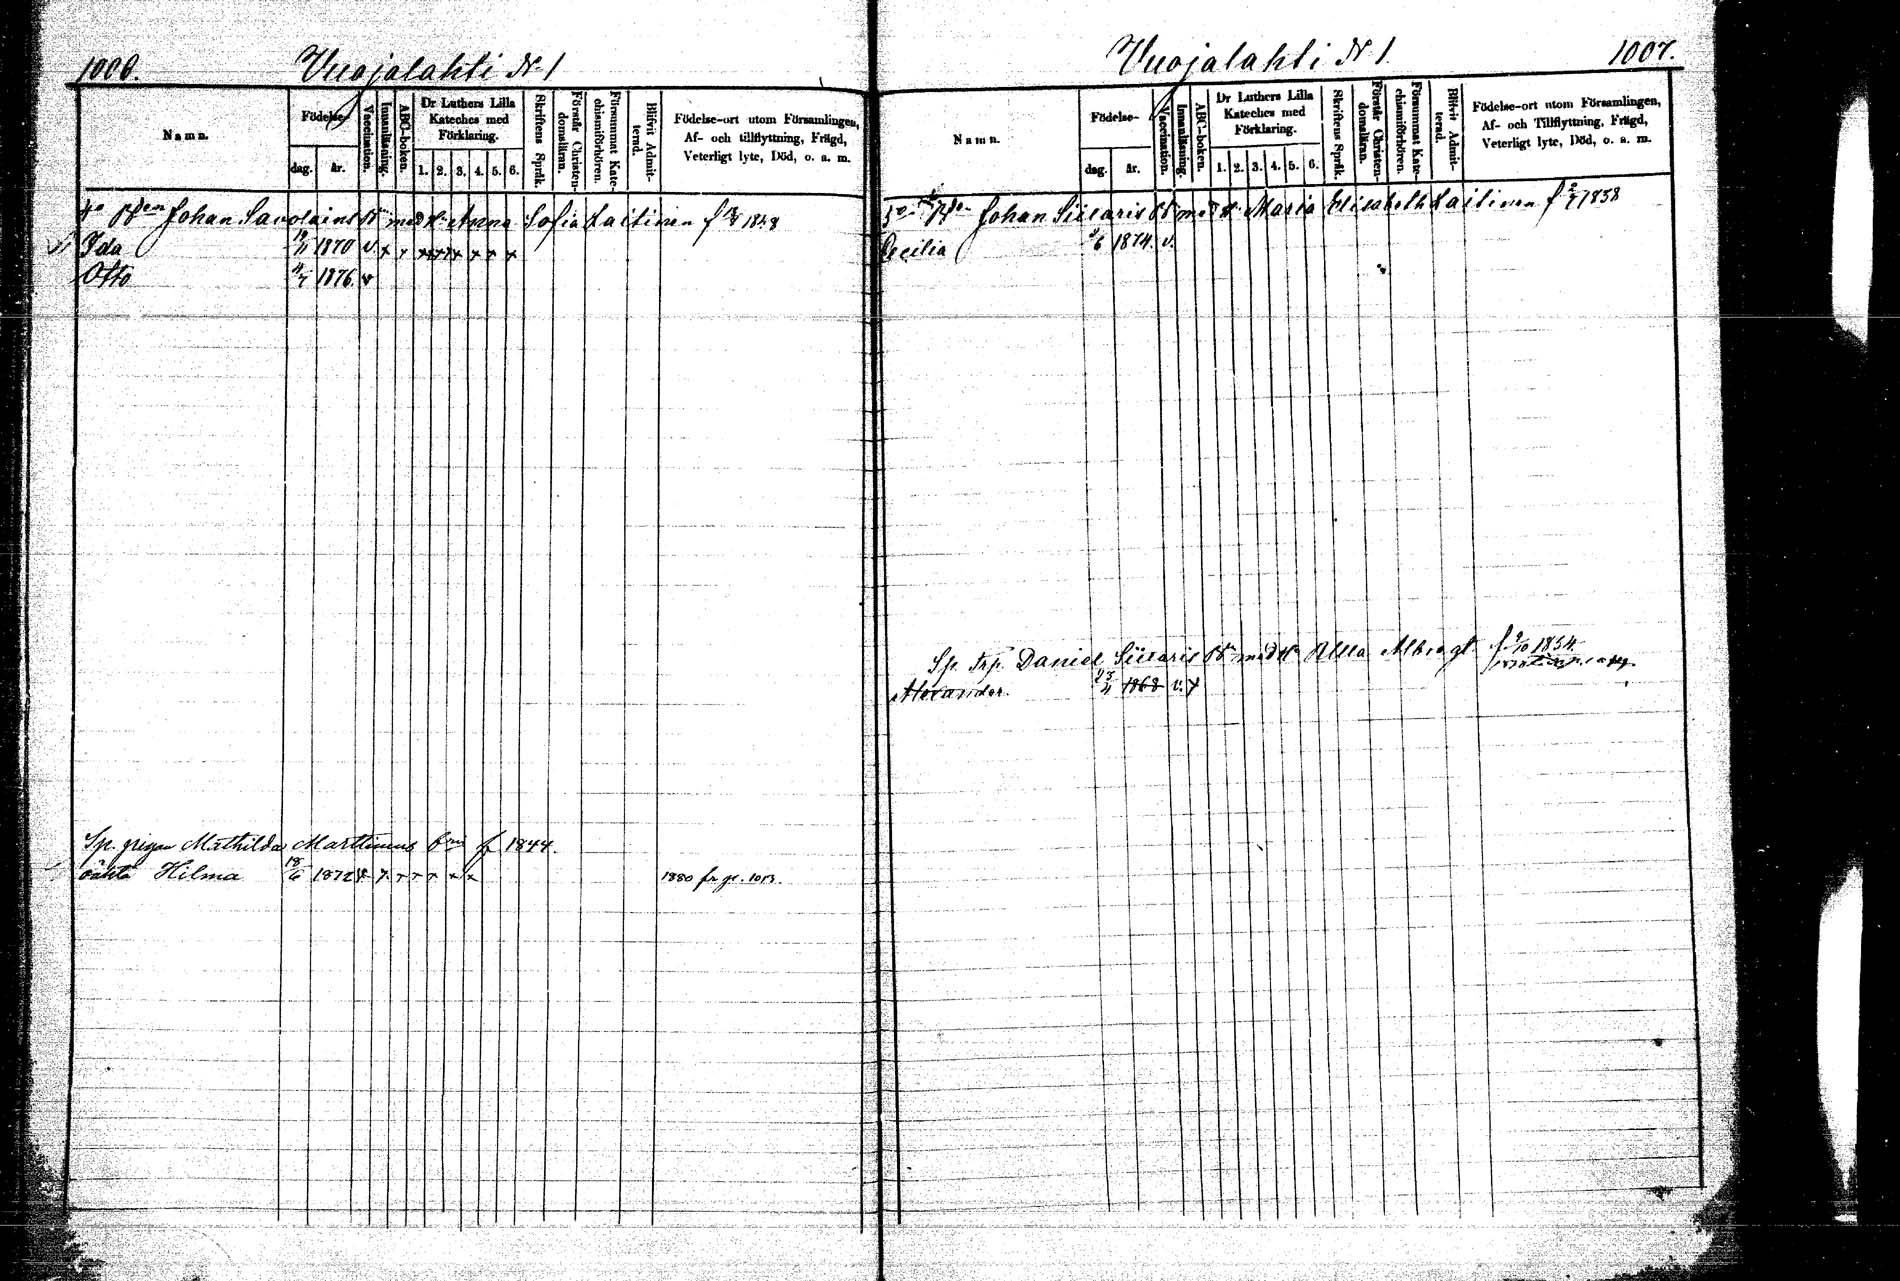 1006. Vuojalahti № 1
Namn. Födelse- dag. år. Vaccination. Innanläsning. ABC-boken. Dr Luthers Lilla Kateches med Förklaring. 1. 2. 3. 4. 5. 6. Skriftens Språk. Förstår Christendomsläran. Försummat Katechismiförhören. Blifvit Admitterad. Födelse-ort utom Församlingen, Af- och tillflyttning, Frägd, Veterligt lyte, Död, o. a. m.
Johan Savolains med Anna Sofia Laitinen f 1848
Ida 1870 v. x x x x x x x
Otto 1876. v
Sp. pigan Mathilda Marttinens f 1844.
oäkta Hilma 18/6 1872 x x x x x x 1880 fr p. 1013.
Vuojalahti № 1. 1007.
Namn. Födelse- dag. år. Vaccination. Innanläsning. ABC-boken. Dr Luthers Lilla Kateches med Förklaring. 1. 2. 3. 4. 5. 6. Skriftens Språk. Förstår Christendomsläran. Försummat Katechismiförhören. Blifvit Admitterad. Födelse-ort utom Församlingen, Af- och Tillflyttning, Frägd, Veterligt lyte, Död, o. a. m.
Johan Siitaris med Maria Elisabeth Laitinen f 1838
Cecilia 1874. v.
Sp. Trp. Daniel Siitaris med Ulla f 9/10 1834.
Alexander. 23/11 1868 v. x